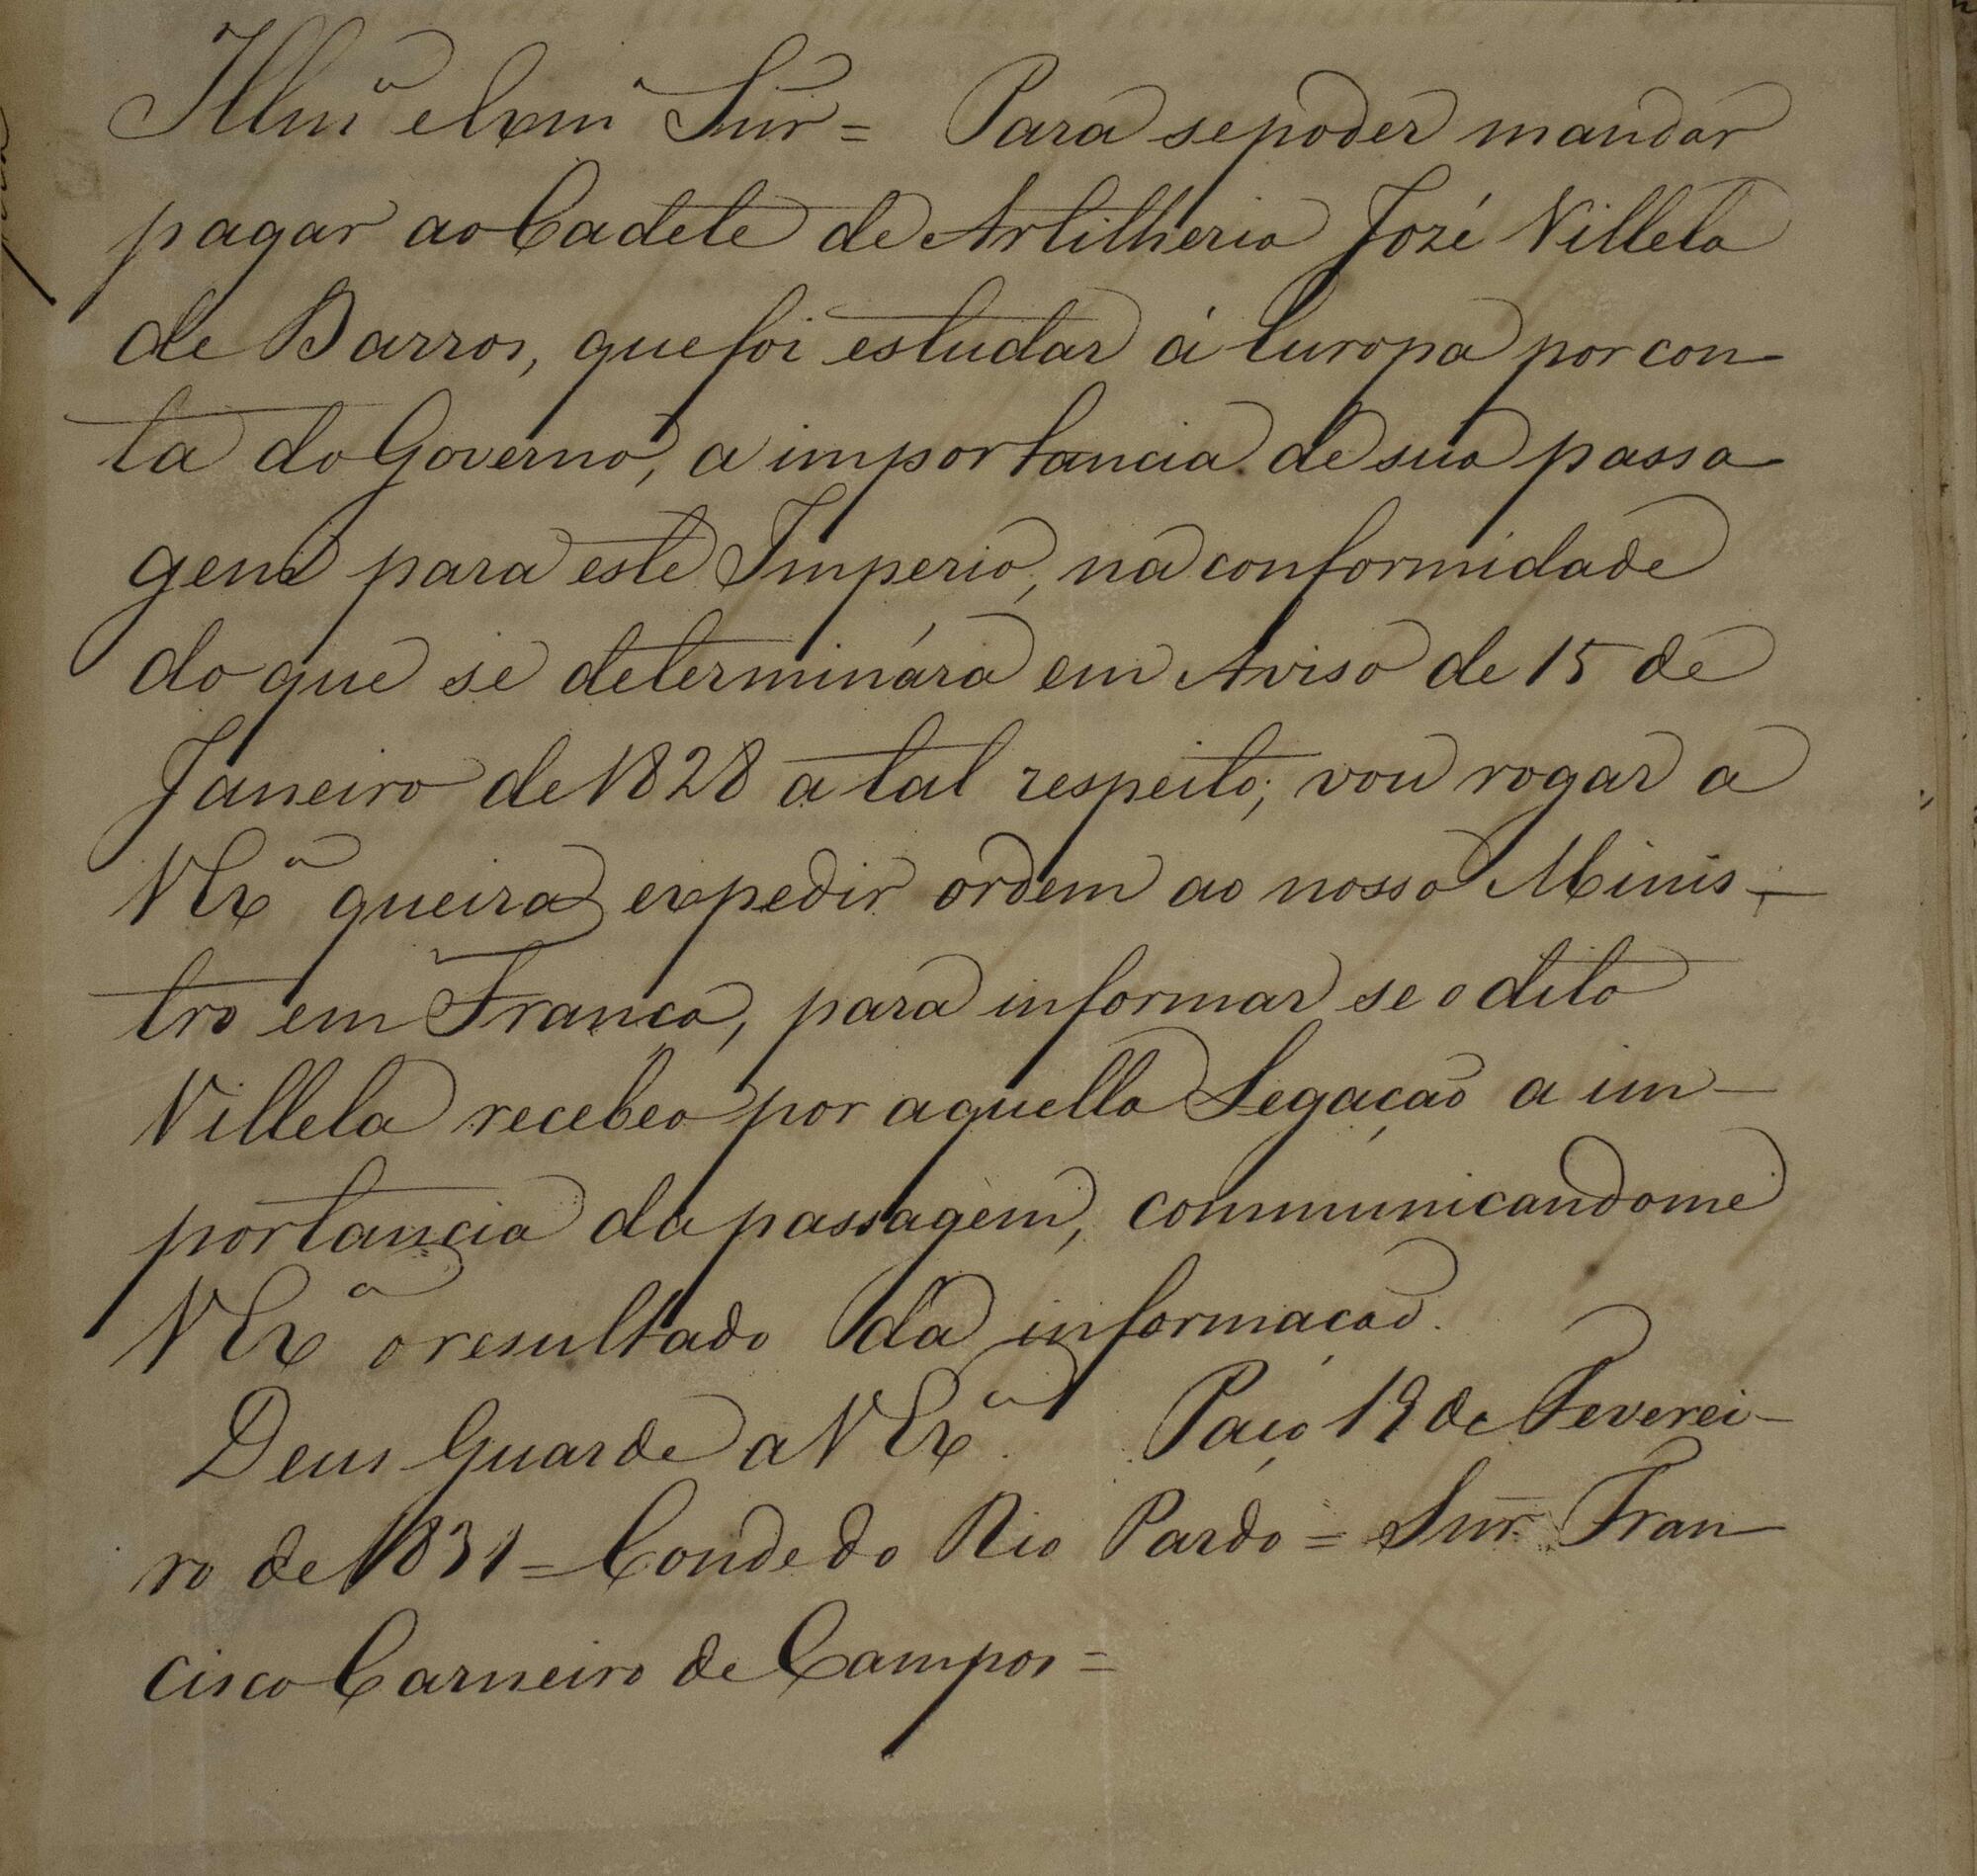 Illmº e Exmº Snr = Para se poder mandar
pagar ao Cadete de Artilheria Jozé Villela
de Barros, que foi estudar á Europa por con
ta do Governo, a importancia de sua passa
gem para este Imperio, na conformidade
do que se determinára em Aviso de 15 de
Janeiro de 1828 a tal respeito; vou rogar a
V Exª queira expedir ordem ao nosso Minis-
tro em França, para informar se o dito
Villela recebeo por aquella Legação a im-
portancia da passagem, communicandome
V Exª o resultado da informação.
Deus Guarde a V Exª. Paço 19 de Feverei-
ro de 1831 = Conde do Rio Pardo = Snr. Fran
cisco Carneiro de Campos =